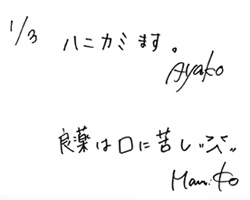 1/3
ハニカミます。
Ayako
良薬は口に苦し
Mari.Ko